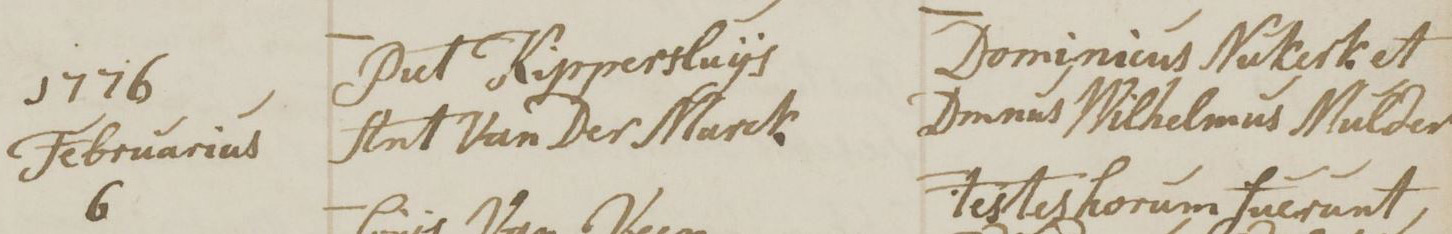 1776
Februarius
6
Piet Kippersluijs
Ant Van Der Marck
Van Veen
Dominicus Nukerk et
Dmnus Wilhelmus Mulder
testes horum fuerunt,